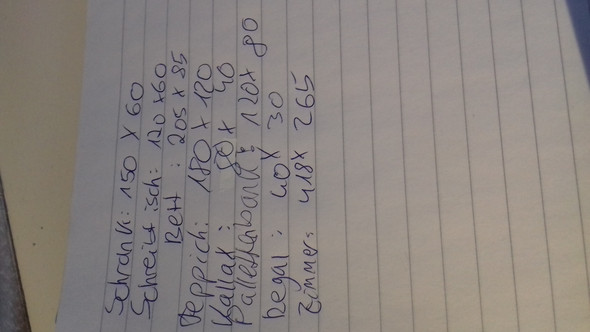 Schrank: 150 x 60
Schreibtisch: 120 x 60
Bett : 205 x 85
Teppich: 180 x 120
Kallax : 80 x 40
Palettenbank: 120 x 80
Regal : 40 x 30
Zimmer: 418 x 265